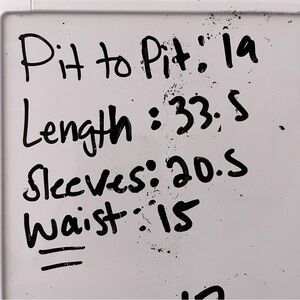 Pit to Pit: 19
Length: 33.5
Sleeves: 20.5
Waist: 15